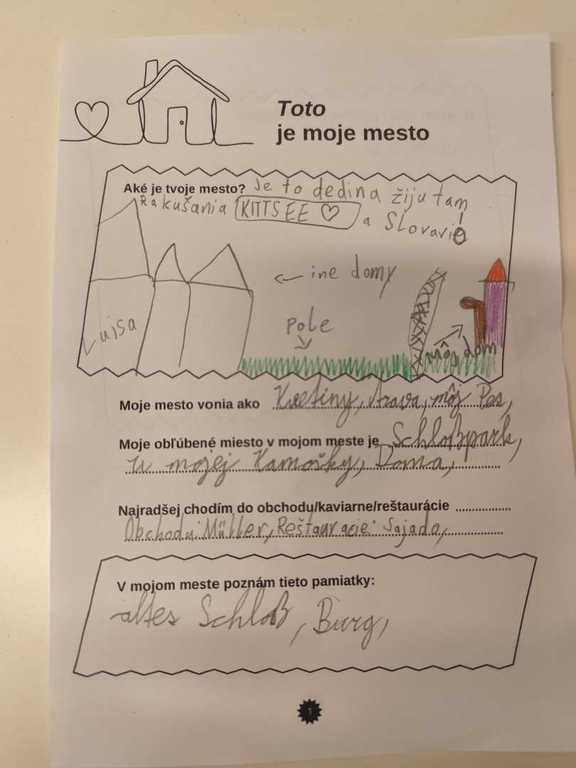 Toto
je moje mesto
Aké je tvoje mesto? Je to dedina žiju tam
Rakušania KITTSEE a Slovaci
← ine domy
Lujsa
Pole
môj dom
Moje mesto vonia ako Kvetiny, trava, môj Pes,
Moje obľúbené miesto v mojom meste je Schloßpark,
u mojej Kamošky, Doma,
Najradšej chodím do obchodu/kaviarne/reštaurácie
Obchodu: Müller, Reštauracie: Sajado,
V mojom meste poznám tieto pamiatky:
altes Schloß, Burg,
1